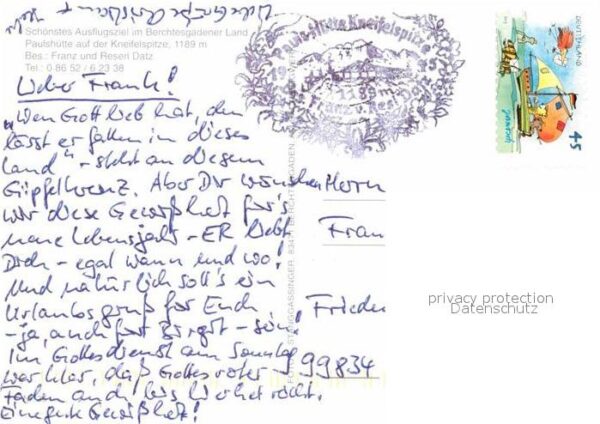 Liebe Grüße
Schönstes Ausflugsziel im Berchtesgadener Land
Paulshütte auf der Kneifelspitze, 1189 m
Bes.: Franz und Reserl Datz
Tel.: 0 86 52 / 6 23 38
Lieber Frank!
"Wen Gott lieb hat, den
lässt er fallen in dieses
Land" - steht an diesem
Gipfelkreuz. Aber Dir wünschen
wir diese Gewißheit für's
neue Lebensjahr - ER liebt
Dich - egal wann und wo!
Und natürlich soll's ein
Urlaubsgruß für Euch
- ja, auch für Birgit - sein!
Im Gottesdienst am Sonntag
war klar, daß Gottes roter
Faden auch bis hierher reicht.
Eine gute Gewißheit!
Paulshütte Kneifelspitze
1189 m
Franz u. Reserl Datz
BERCHTESGADEN
Herrn
Fran
Frieder
99834
DEUTSCHLAND
Janosch
45
privacy protection
Datenschutz